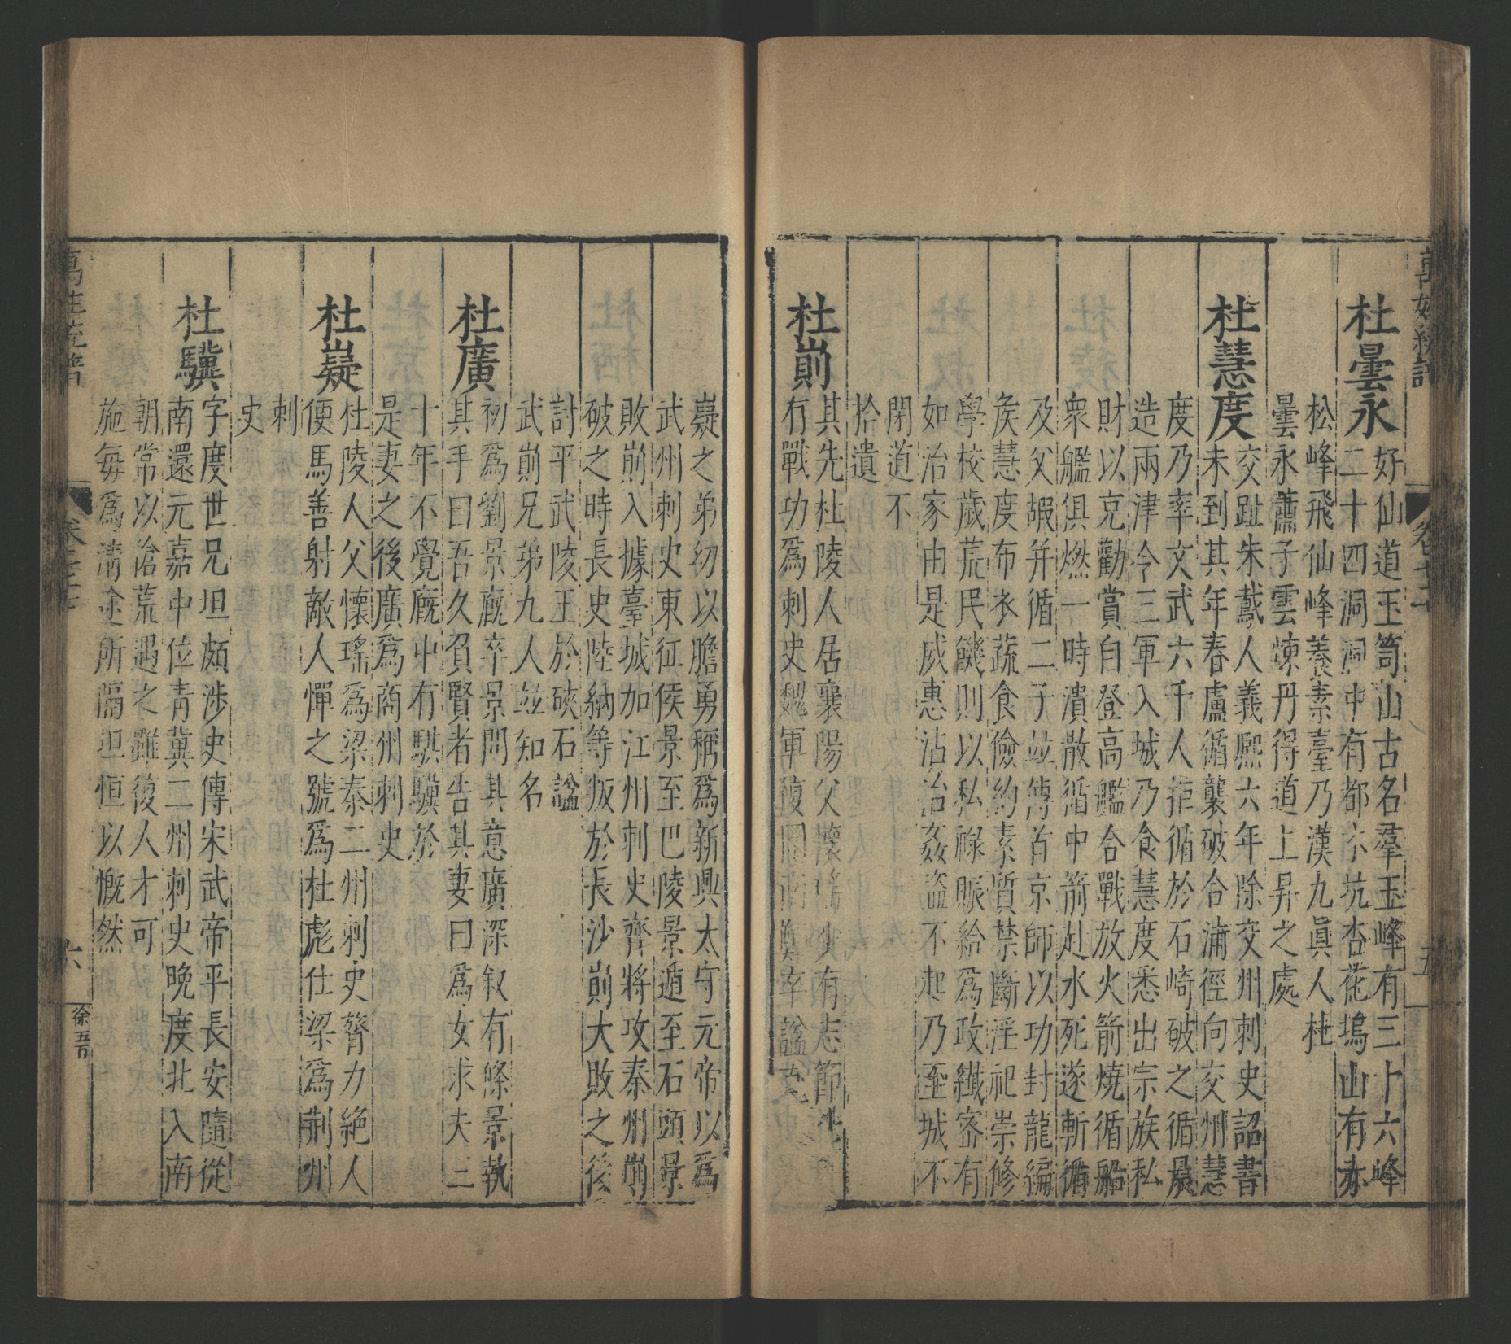 杜曇永
好仙道玉笥山古名羣玉峰有三十六峰
二十四洞洞中有都木坑杏花塢山有赤
松峰飛仙峰養素臺乃漢九眞人杜
曇永蕭子雲煉丹得道上昇之處
杜慧度
交趾朱䳒人義熈六年除交州刺史詔書
未到其年春盧循襲破合浦徑向交州慧
度乃率文武六千人拒循於石崎破之循晨
造兩津令三軍入城乃食慧度悉出宗族私
財以克勸賞自登高艦合戰放火箭燒循船
衆艦俱燃一時潰散循中箭赴水死遂斬循
及父嘏并循二子並傳首京師以功封龍編
矦慧度布衣蔬食儉約素質禁斷淫祀崇修
學校歲荒民饑則以私祿賑給爲政纖宻有
如治家由是威惠沾洽姦盜不起乃至城不
閉道不
拾遺
杜崱
其先杜陵人居襄陽父懷瑤少有志節
有戰功爲刺史魏軍復圍南鄭卒諡
嶷之弟幼以膽勇稱爲新興太守元帝以爲
武州刺史東征侯景至巴陵景遁至石頭景
敗崱入據臺城加江州刺史齊將攻秦州崱
破之時長史陸納等叛於長沙崱大敗之後
討平武陵王於硤石諡
武崱兄弟九人並知名
杜廣
初爲劉景廐卒景問其意廣深叙有條景執
其手曰吾久負賢者告其妻曰爲女求夫三
十年不覺廐中有騏驥於
是妻之後廣爲商州刺史
杜嶷
杜陵人父懷瑤爲梁秦二州刺史膂力絶人
便馬善射敵人憚之號爲杜彪仕梁爲荆州
刺
史
杜驥
字度世兄坦頗涉史傳宋武帝平長安隨從
南還元嘉中位青冀二州刺史晚度北入南
朝常以傖荒遇之雖復人才可
施每爲淸途所隔坦恒以慨然
六